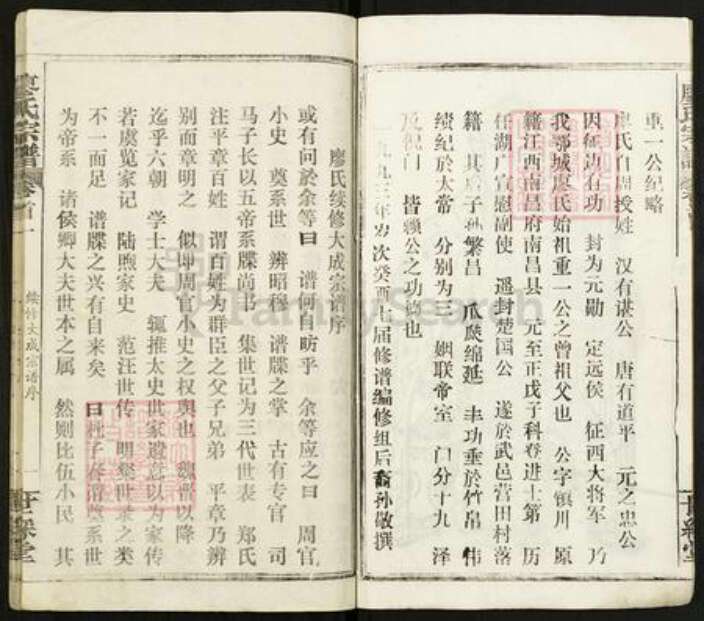 重一公纪略
廖氏自周授姓 汉有谌公 唐有道平 元之忠公
因征边有功 封为元勋 定远侯 征西大将军 乃
我鄂城廖氏始祖重一公之曾祖父也 公字镇川 原
籍江西南昌府南昌县 元至正戊子科卷进士第 历
任湖广宣慰副使 遥封楚国公 遂於武邑营田村落
籍 其 子孙繁昌 瓜瓞绵延 丰功垂於竹帛 伟
绩纪於太常 分别为三 姻联帝室 门分十九 泽
及祝门 皆赖公之功德也
一九九三年岁次癸酉七届修谱编修组后裔孙敬撰
廖氏续修大成宗谱序
或有问於余等曰 谱何自昉乎 余等应之曰 周官
小史 奠系世 辨昭穆 谱牒之掌 古有专官 司
马子长以五帝系牒尚书 集世记为三代世表 郑氏
注平章百姓 谓百姓为群臣之父子兄弟 平章乃辨
别而章明之 似即周官小史之权舆也 魏晋以降
迄乎六朝 学士大夫 辄推太史世家遗意以为家传
若虞览家记 陆煦家史 范汪世传 明粲世录之类
不一而足 谱牒之兴有自来矣 曰杜子春谓奠系世
为帝系 诸侯卿大夫世本之属 然则比伍小民 其
廖氏宗谱 卷首一
续修大成宗谱序
世綵堂
FamilySearch